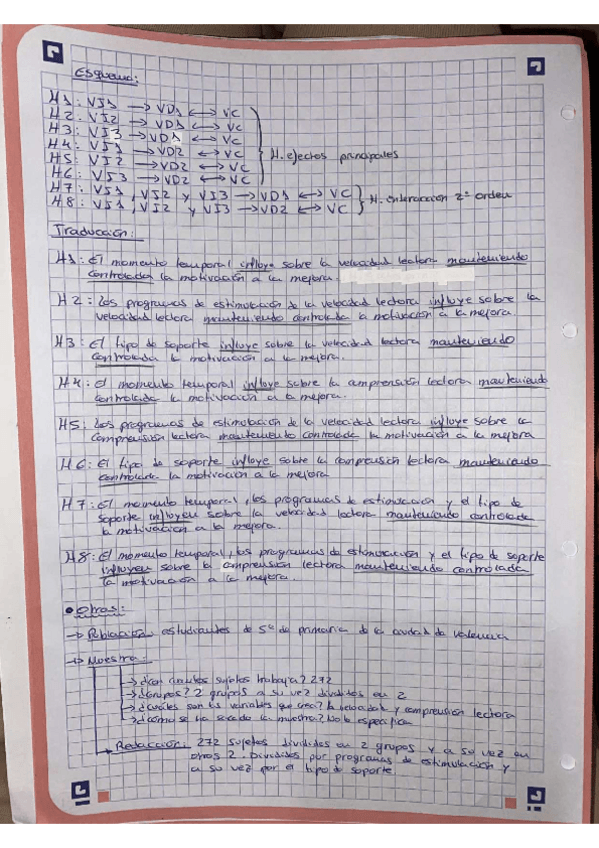 Esquema:
H1: VI1 → VD1 ↔ VC
H2: VI2 → VD1 ↔ VC
H3: VI3 → VD1 ↔ VC
H4: VI1 → VD2 ↔ VC
H5: VI2 → VD2 ↔ VC
H. efectos principales
H6: VI3 → VD2 ↔ VC
H7: VI1, VI2 y VI3 → VD1 ↔ VC
H8: VI1, VI2 y VI3 → VD2 ↔ VC
H. interacción 2º orden
Traducción:
H1: El momento temporal influye sobre la velocidad lectora manteniendo
controlada la motivación a la mejora.
H2: Los programas de estimulación de la velocidad lectora influye sobre la
velocidad lectora manteniendo controlada la motivación a la mejora.
H3: El tipo de soporte influye sobre la velocidad lectora manteniendo
controlada la motivación a la mejora.
H4: El momento temporal influye sobre la comprensión lectora manteniendo
controlada la motivación a la mejora.
H5: Los programas de estimulación de la velocidad lectora influye sobre la
comprensión lectora manteniendo controlada la motivación a la mejora
H6: El tipo de soporte influye sobre la comprensión lectora manteniendo
controlada la motivación a la mejora
H7: El momento temporal, los programas de estimulación y el tipo de
soporte influyen sobre la velocidad lectora manteniendo controlada
la motivación a la mejora.
H8: El momento temporal, los programas de estimulación y el tipo de soporte
influyen sobre la comprensión lectora manteniendo controlada
la motivación a la mejora.
• Otros:
→ Población: estudiantes de 5º de primaria de la ciudad de Valencia
→ Muestra:
→ ¿Con cuántos sujetos trabaja? 272
→ ¿Grupos? 2 grupos a su vez divididos en 2
→ ¿cuáles son las variables que crea? la velocidad y comprensión lectora
→ ¿cómo se ha sacado la muestra? No lo especifica
→ Redacción: 272 sujetos divididos en 2 grupos y a su vez en
otros 2. Divididos por programas de estimulación y
a su vez por el tipo de soporte.